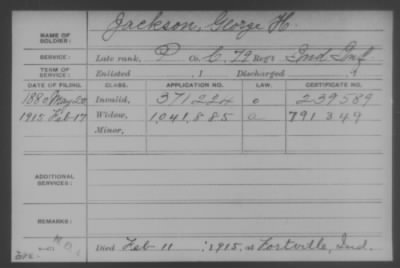 NAME OF SOLDIER: Jackson, George H.
SERVICE: Late rank, P Co. C, 79 Reg't Ind Inf
TERM OF SERVICE: Enlisted , 1 Discharged , 1
DATE OF FILING. CLASS. APPLICATION NO. LAW. CERTIFICATE NO.
1880 May 20 Invalid, 371224 o 239589
1915 Feb 17 Widow, 1,041,885 a 791349
Minor,
ADDITIONAL SERVICES:
REMARKS:
Died Feb 11 , 1915, at Fortville, Ind.